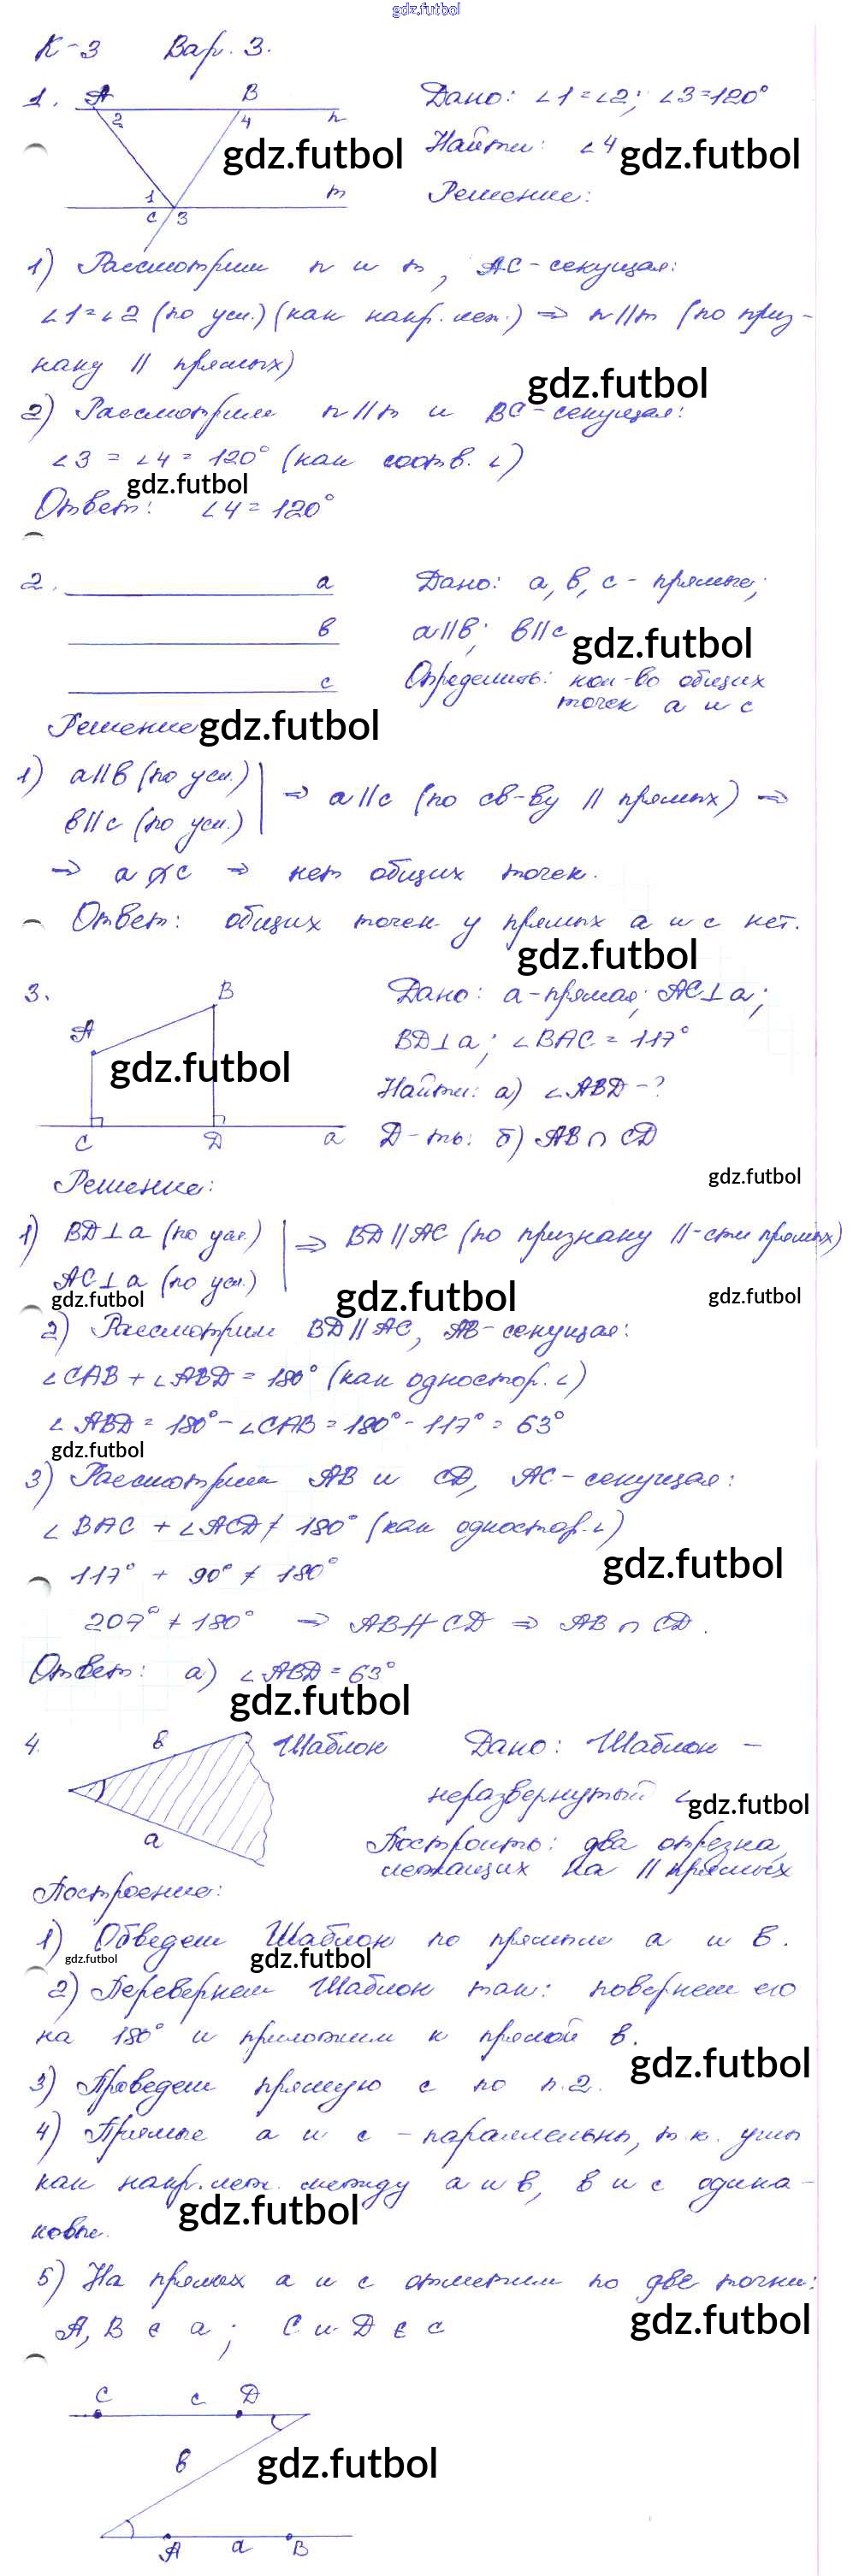 gdz.futbol
К-3 Вар. 3.
1. A B n m C 1 2 3 4
Дано: ∠1=∠2; ∠3=120°
Найти: ∠4
gdz.futbol gdz.futbol
Решение:
1) Рассмотрим n и m, AC-секущая:
∠1=∠2 (по усл.) (как накр. леж.) ⇒ n∥m (по приз-
наку ∥ прямых)
gdz.futbol
2) Рассмотрим n∥m и BC-секущая:
∠3 = ∠4 = 120° (как соотв. ∠)
gdz.futbol
Ответ: ∠4 = 120°
2. a
Дано: a, в, c - прямые;
в
a∥в; в∥c
gdz.futbol
c
Определить: кол-во общих
точек a и c
Решение
gdz.futbol
1) a∥в (по усл.)
в∥c (по усл.)
⇒ a∥c (по св-ву ∥ прямых) ⇒
⇒ a ∩̸ c ⇒ нет общих точек.
Ответ: общих точек у прямых a и c нет.
gdz.futbol
3. A B C D a
Дано: a-прямая; AC⊥a;
BD⊥a; ∠BAC = 117°
gdz.futbol
Найти: а) ∠ABD-?
Д-ть: б) AB ∩ CD
gdz.futbol
Решение:
1) BD⊥a (по усл.)
AC⊥a (по усл.)
⇒ BD∥AC (по признаку ∥-сти прямых)
gdz.futbol gdz.futbol gdz.futbol
2) Рассмотрим BD∥AC, AB-секущая:
∠CAB + ∠ABD = 180° (как одностор. ∠)
∠ABD = 180° - ∠CAB = 180° - 117° = 63°
gdz.futbol
3) Рассмотрим AB и CD, AC-секущая:
∠BAC + ∠ACD ≠ 180° (как одностор. ∠)
gdz.futbol
117° + 90° ≠ 180°
207° ≠ 180° ⇒ AB∦CD ⇒ AB ∩ CD.
Ответ: а) ∠ABD = 63°
gdz.futbol
4. в a Шаблон
Дано: Шаблон -
неразвернутый ∠
gdz.futbol
Построить: два отрезка,
лежащих на ∥ прямых
Построение:
1) Обведем Шаблон по прямым a и в.
gdz.futbol gdz.futbol
2) Перевернем Шаблон так: повернем его
на 180° и приложим к прямой в.
gdz.futbol
3) Проведем прямую c по п.2.
4) Прямые a и c - параллельны, т.к. углы
как накр. леж. между a и в, в и c одина-
gdz.futbol
ковые.
5) На прямых a и c отметим по две точки:
gdz.futbol
A, B ∈ a; C и D ∈ c
C c D
в
gdz.futbol
A a B